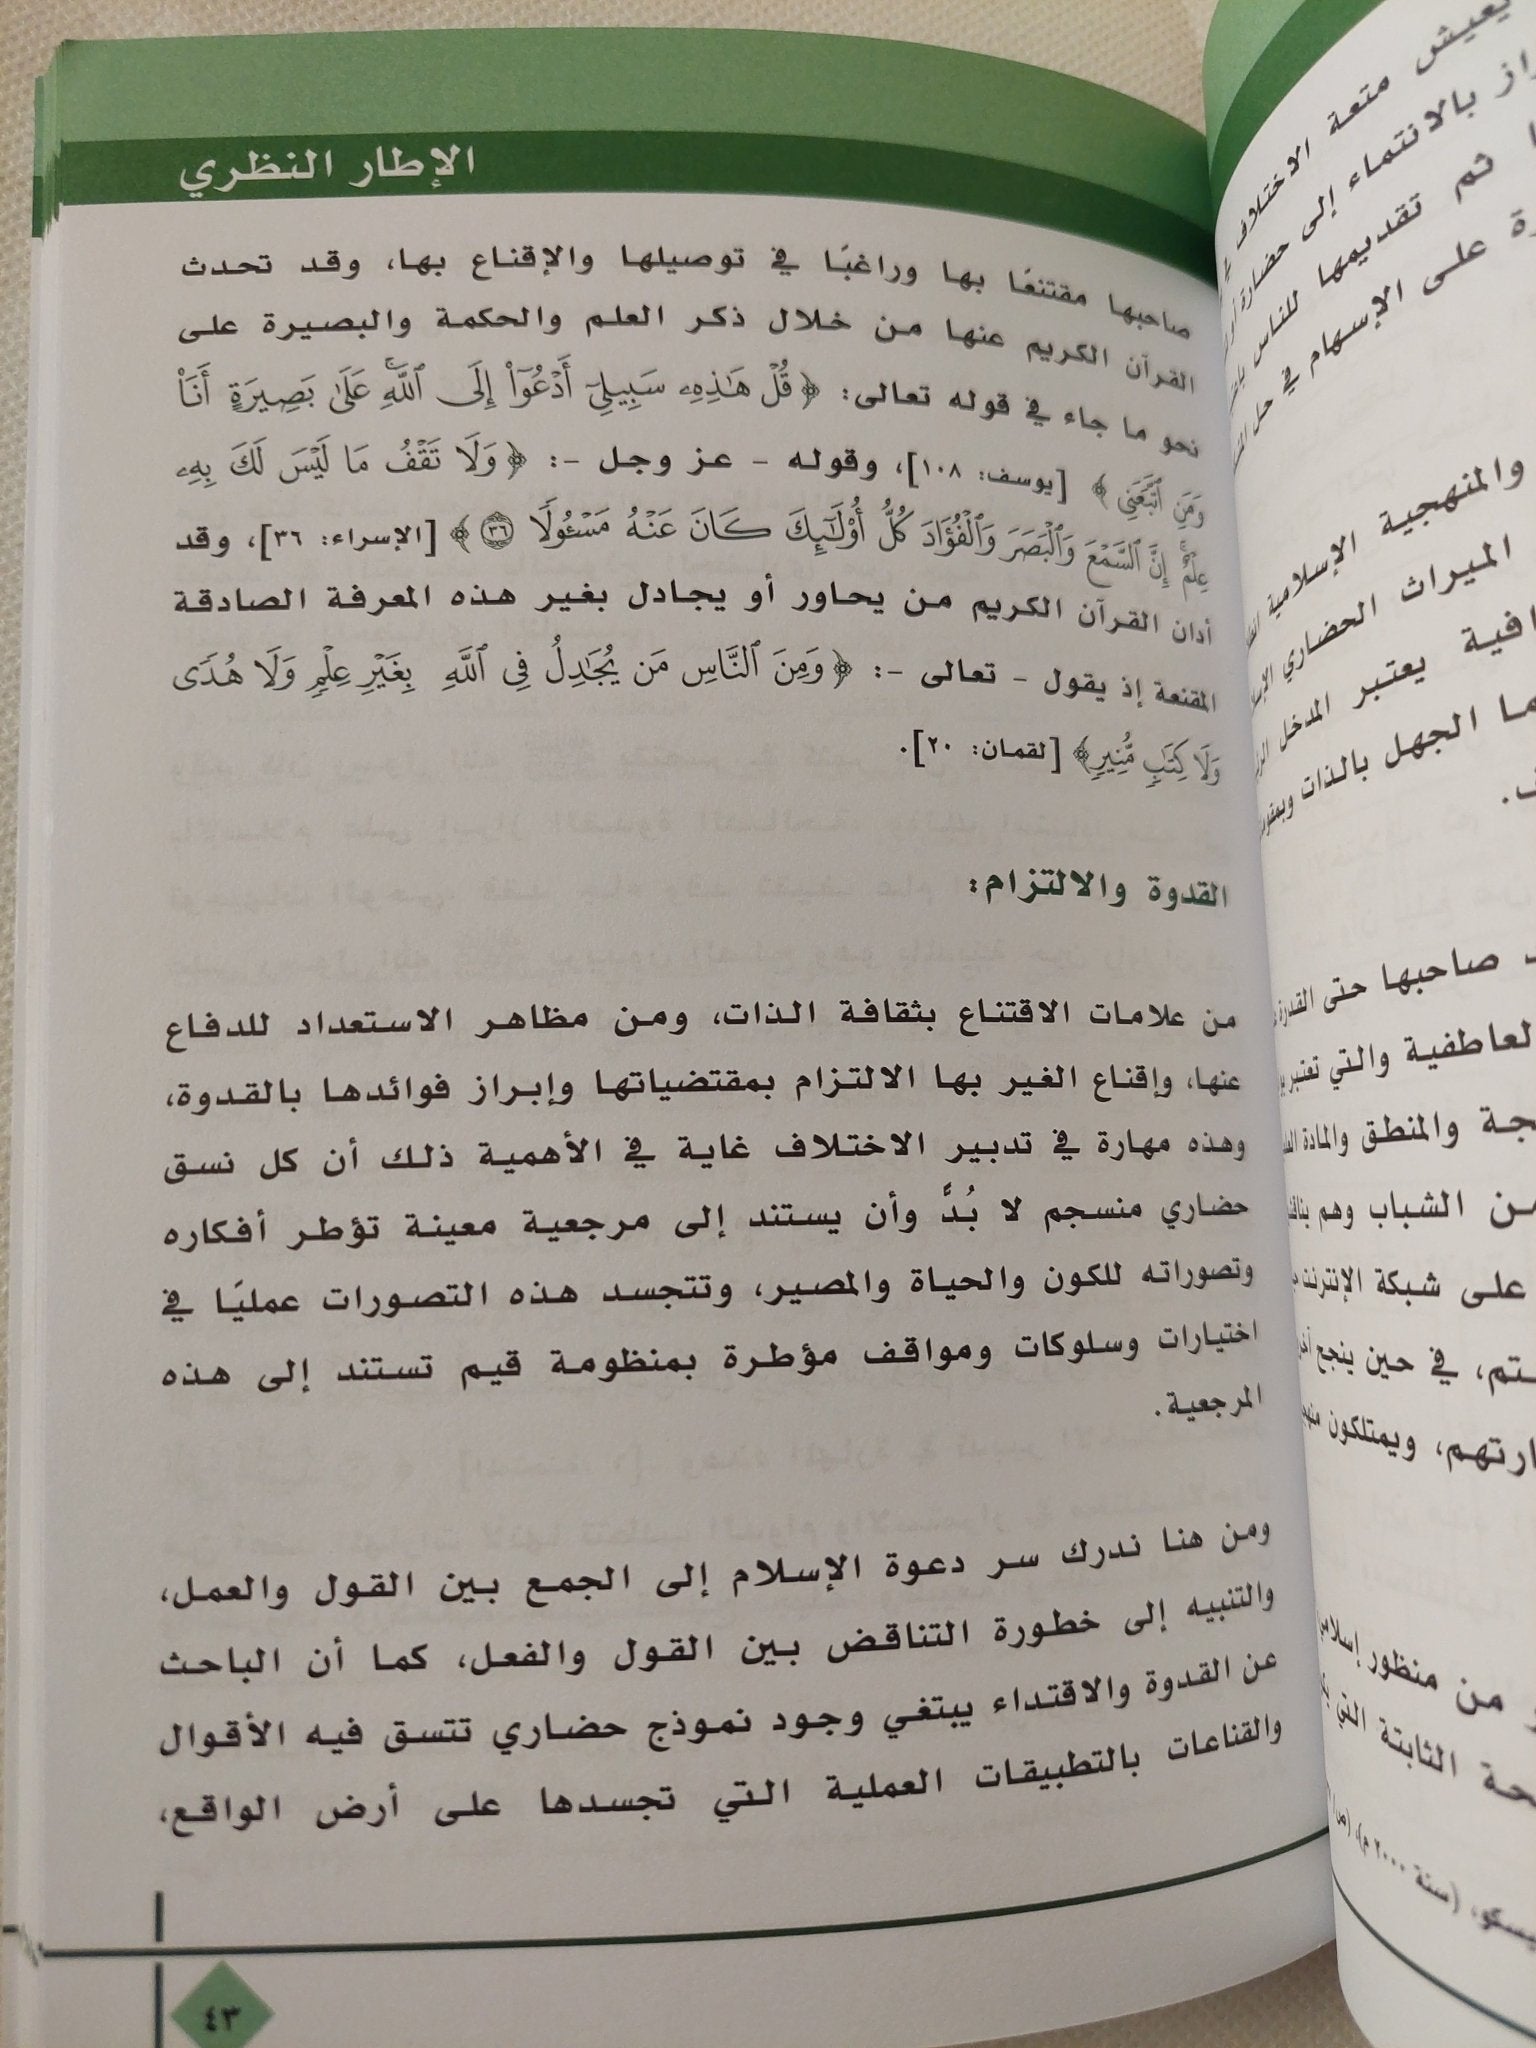 الإطار النظري
صاحبها مقتنعًا بها وراغبًا في توصيلها والإقناع بها، وقد تحدث
القرآن الكريم عنها من خلال ذكر العلم والحكمة والبصيرة على
نحو ما جاء في قوله تعالى: ﴿ قُلْ هَٰذِهِۦ سَبِيلِىٓ أَدْعُوٓا۟ إِلَى ٱللَّهِ ۚ عَلَىٰ بَصِيرَةٍ أَنَا۠
وَمَنِ ٱتَّبَعَنِى ﴾ [يوسف: ١٠٨]، وقوله - عز وجل -: ﴿ وَلَا تَقْفُ مَا لَيْسَ لَكَ بِهِۦ
عِلْمٌ ۚ إِنَّ ٱلسَّمْعَ وَٱلْبَصَرَ وَٱلْفُؤَادَ كُلُّ أُو۟لَٰٓئِكَ كَانَ عَنْهُ مَسْـُٔولًا ﴿٣٦﴾ ﴾ [الإسراء: ٣٦]، وقد
أدان القرآن الكريم من يحاور أو يجادل بغير هذه المعرفة الصادقة
المقنعة إذ يقول - تعالى -: ﴿ وَمِنَ ٱلنَّاسِ مَن يُجَٰدِلُ فِى ٱللَّهِ بِغَيْرِ عِلْمٍ وَلَا هُدًى
وَلَا كِتَٰبٍ مُّنِيرٍ ﴾ [لقمان: ٢٠].
القدوة والالتزام:
من علامات الاقتناع بثقافة الذات، ومن مظاهر الاستعداد للدفاع
عنها، وإقناع الغير بها الالتزام بمقتضياتها وإبراز فوائدها بالقدوة،
وهذه مهارة في تدبير الاختلاف غاية في الأهمية ذلك أن كل نسق
حضاري منسجم لا بُدَّ وأن يستند إلى مرجعية معينة تؤطر أفكاره
وتصوراته للكون والحياة والمصير، وتتجسد هذه التصورات عمليًا في
اختيارات وسلوكات ومواقف مؤطرة بمنظومة قيم تستند إلى هذه
المرجعية.
ومن هنا ندرك سر دعوة الإسلام إلى الجمع بين القول والعمل،
والتنبيه إلى خطورة التناقض بين القول والفعل، كما أن الباحث
عن القدوة والاقتداء يبتغي وجود نموذج حضاري تتسق فيه الأقوال
والقناعات بالتطبيقات العملية التي تجسدها على أرض الواقع،
٤٣
يعيش متعة الاختلاف
بالانتماء إلى حضارة
ثم تقديمها للناس
على الإسهام في حل
والمنهجية الإسلامية
الميراث الحضاري
يعتبر المدخل
الجهل بالذات
صاحبها حتى القدرة
والتي تعتبر
والمنطق والمادة
الشباب وهم
على شبكة الإنترنت
في حين ينجح
ويمتلكون
من منظور
الثابتة التي
(سنة ٢٠٠٠ م)،